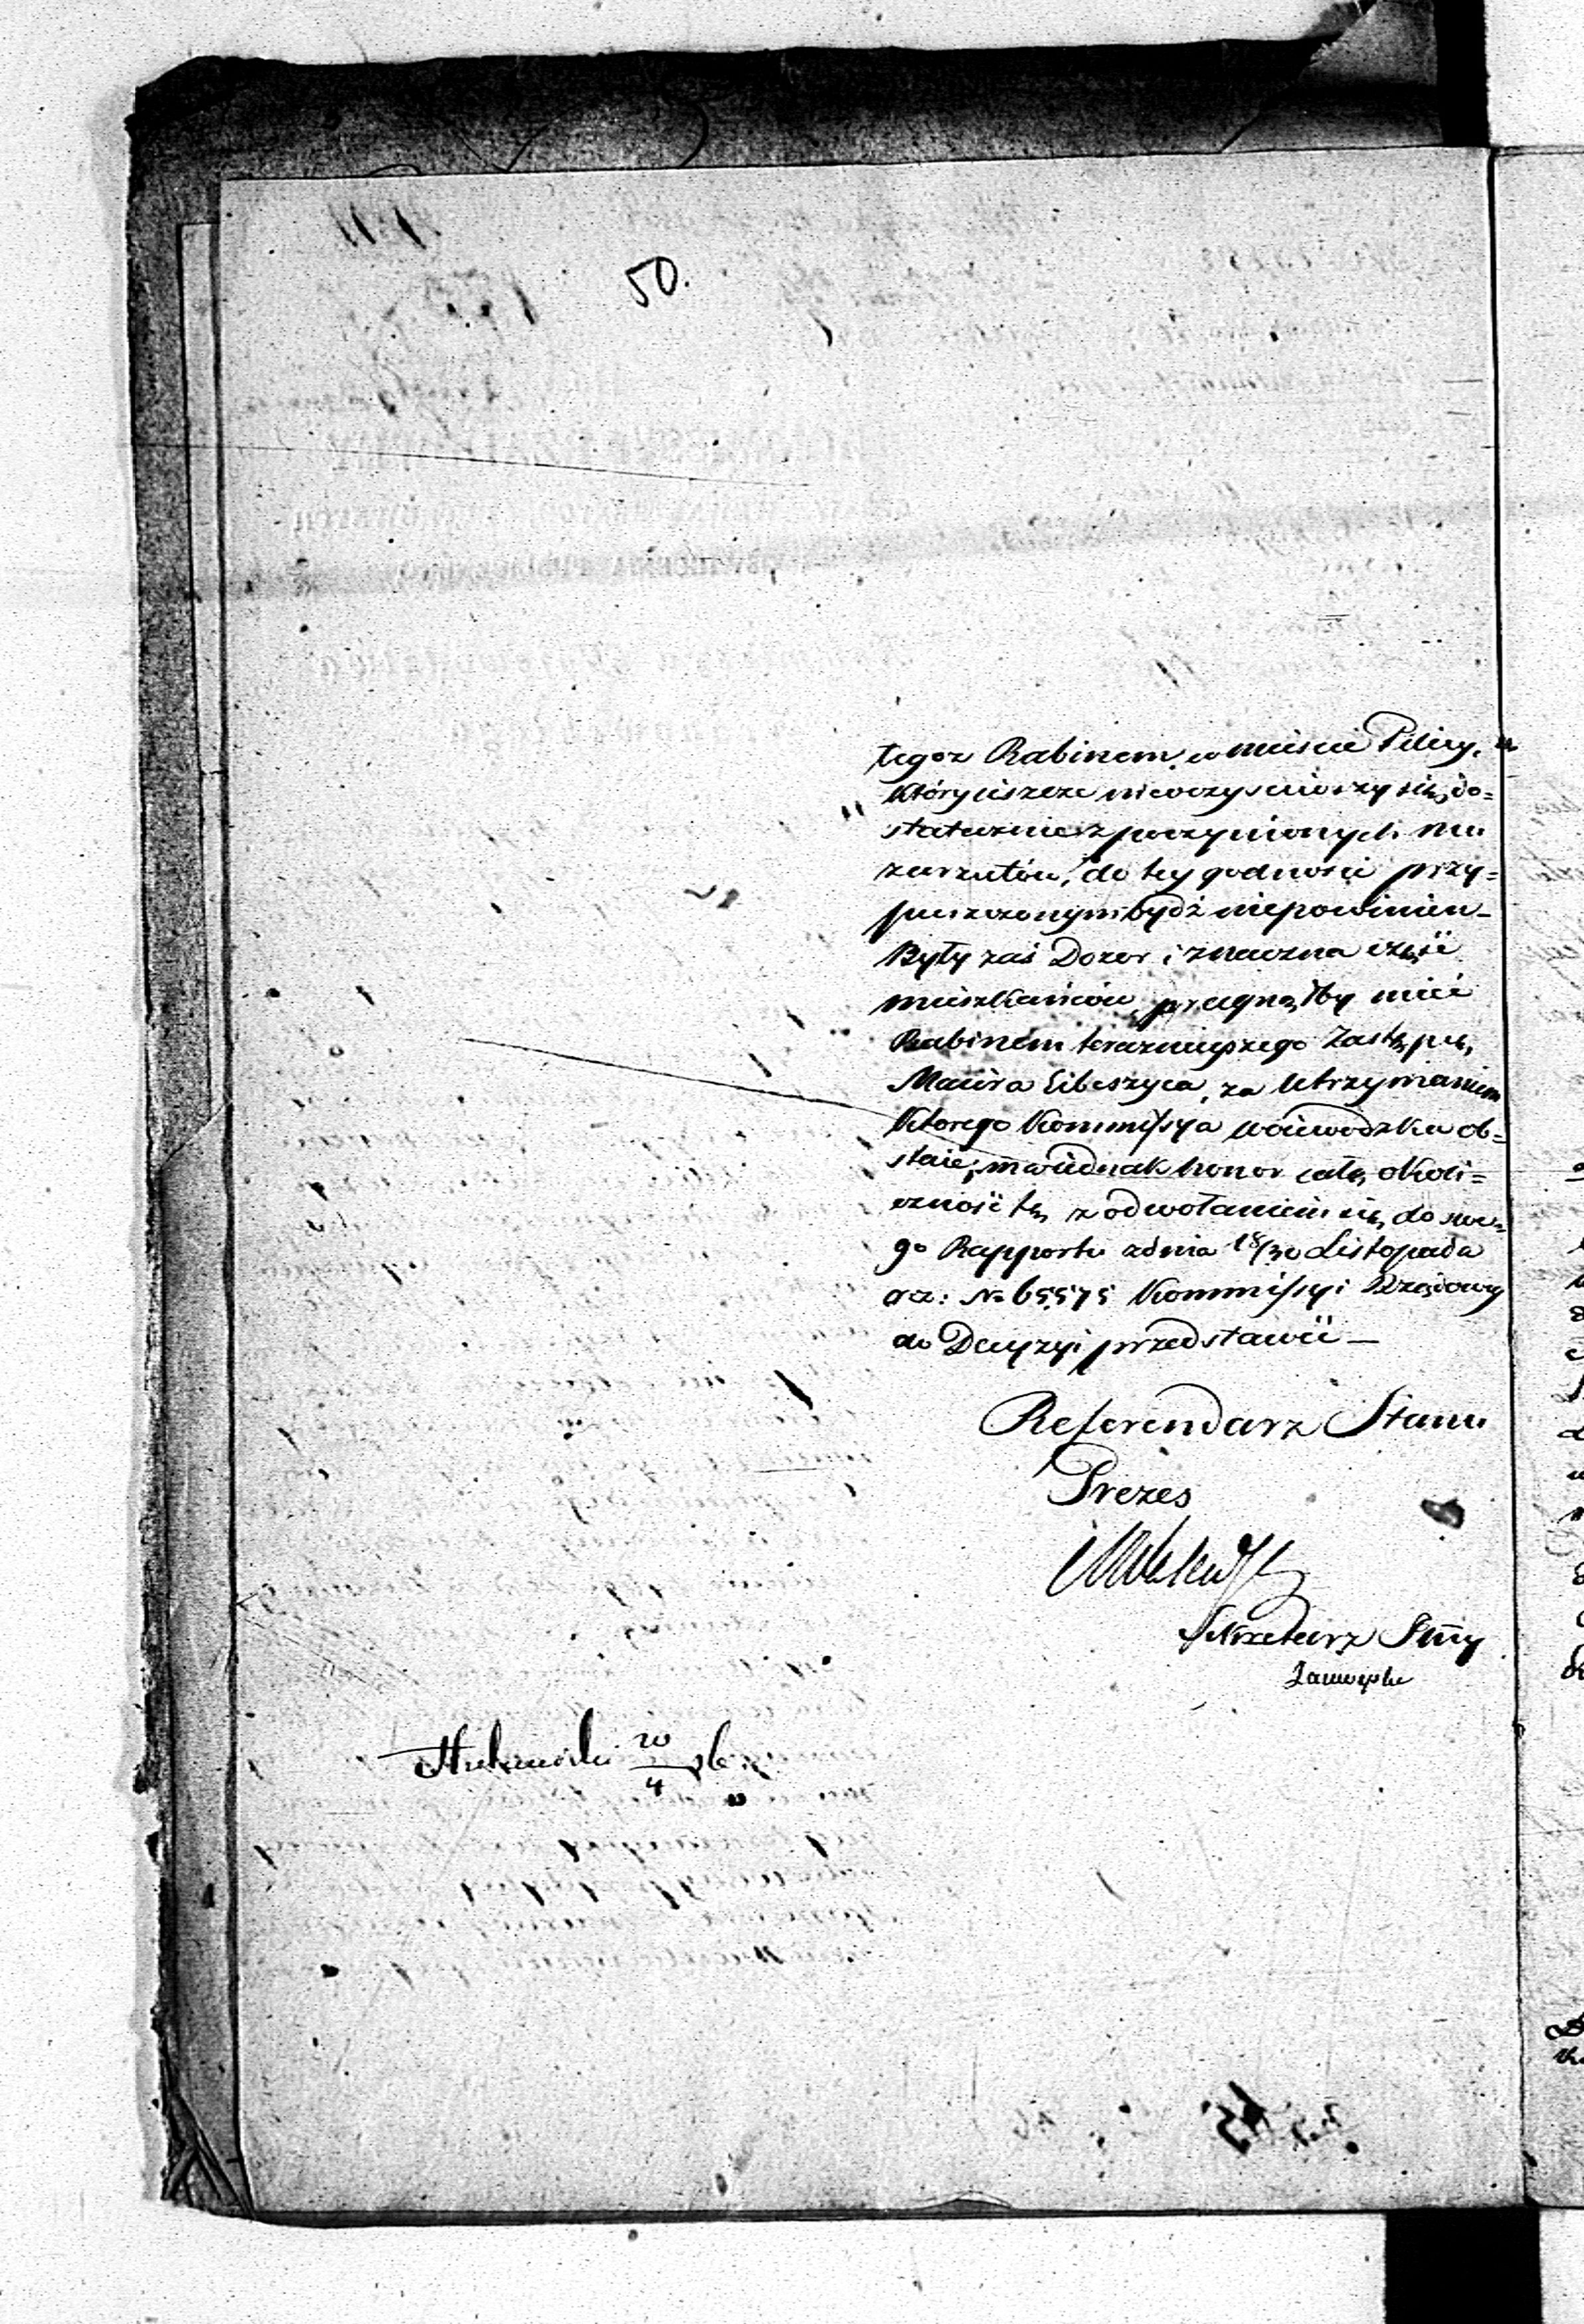 50.
tegoz Rabinem w mieście Pilicy,
który ieszcze nieoczyściwszy się do=
statecznie z poczynionych mu
zarzutów, do tey godności przy=
puszczonym bydź niepowinien_
Były zaś Dozor i znaczna część
mieszkańców pragnęłby mieć
Rabinem teraznieyszego Zastępcę,
Maiera Eibeszyca, za utrzymaniem
Ktorego Kommissya woiewodzka ob=
staie; ma iednak honor całą okoli=
czność tę z odwołaniem się do swe=
go Rapportu zdnia 18/30 Listopada
rz: No 65575 Kommissyi Rządowey
do Decyzyi przedstawić —
Referendarz Stanu
Prezes
Sekretarz Jlny
20
4